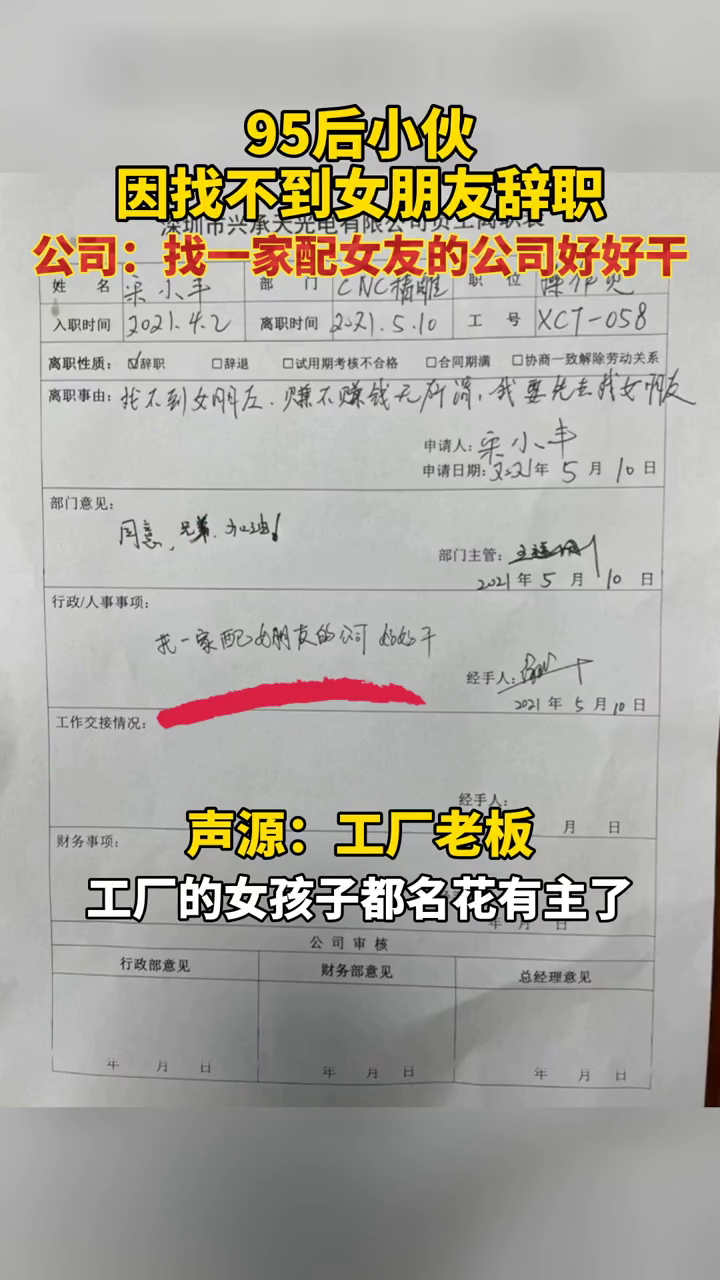 95后小伙
因找不到女朋友辞职
深圳市兴承天光电有限公司员工离职表
公司：找一家配女友的公司好好干
姓 名 宋小丰 部 门 CNC精雕 职 位 操作员
入职时间 2021.4.2 离职时间 2021.5.10 工 号 XCT-058
离职性质：☑辞职 □辞退 □试用期考核不合格 □合同期满 □协商一致解除劳动关系
离职事由：找不到女朋友、赚不赚钱无所谓，我要先去找女朋友
申请人：宋小丰
申请日期：2021年 5 月 10 日
部门意见：
同意，兄弟，加油！
部门主管：
2021 年 5 月 10 日
行政/人事事项：
找一家配女朋友的公司 好好干
经手人：
2021 年 5 月 10 日
工作交接情况：
经手人：
月 日
声源：工厂老板
财务事项：
工厂的女孩子都名花有主了
年 月 日
公 司 审 核
行政部意见 财务部意见 总经理意见
年 月 日 年 月 日 年 月 日